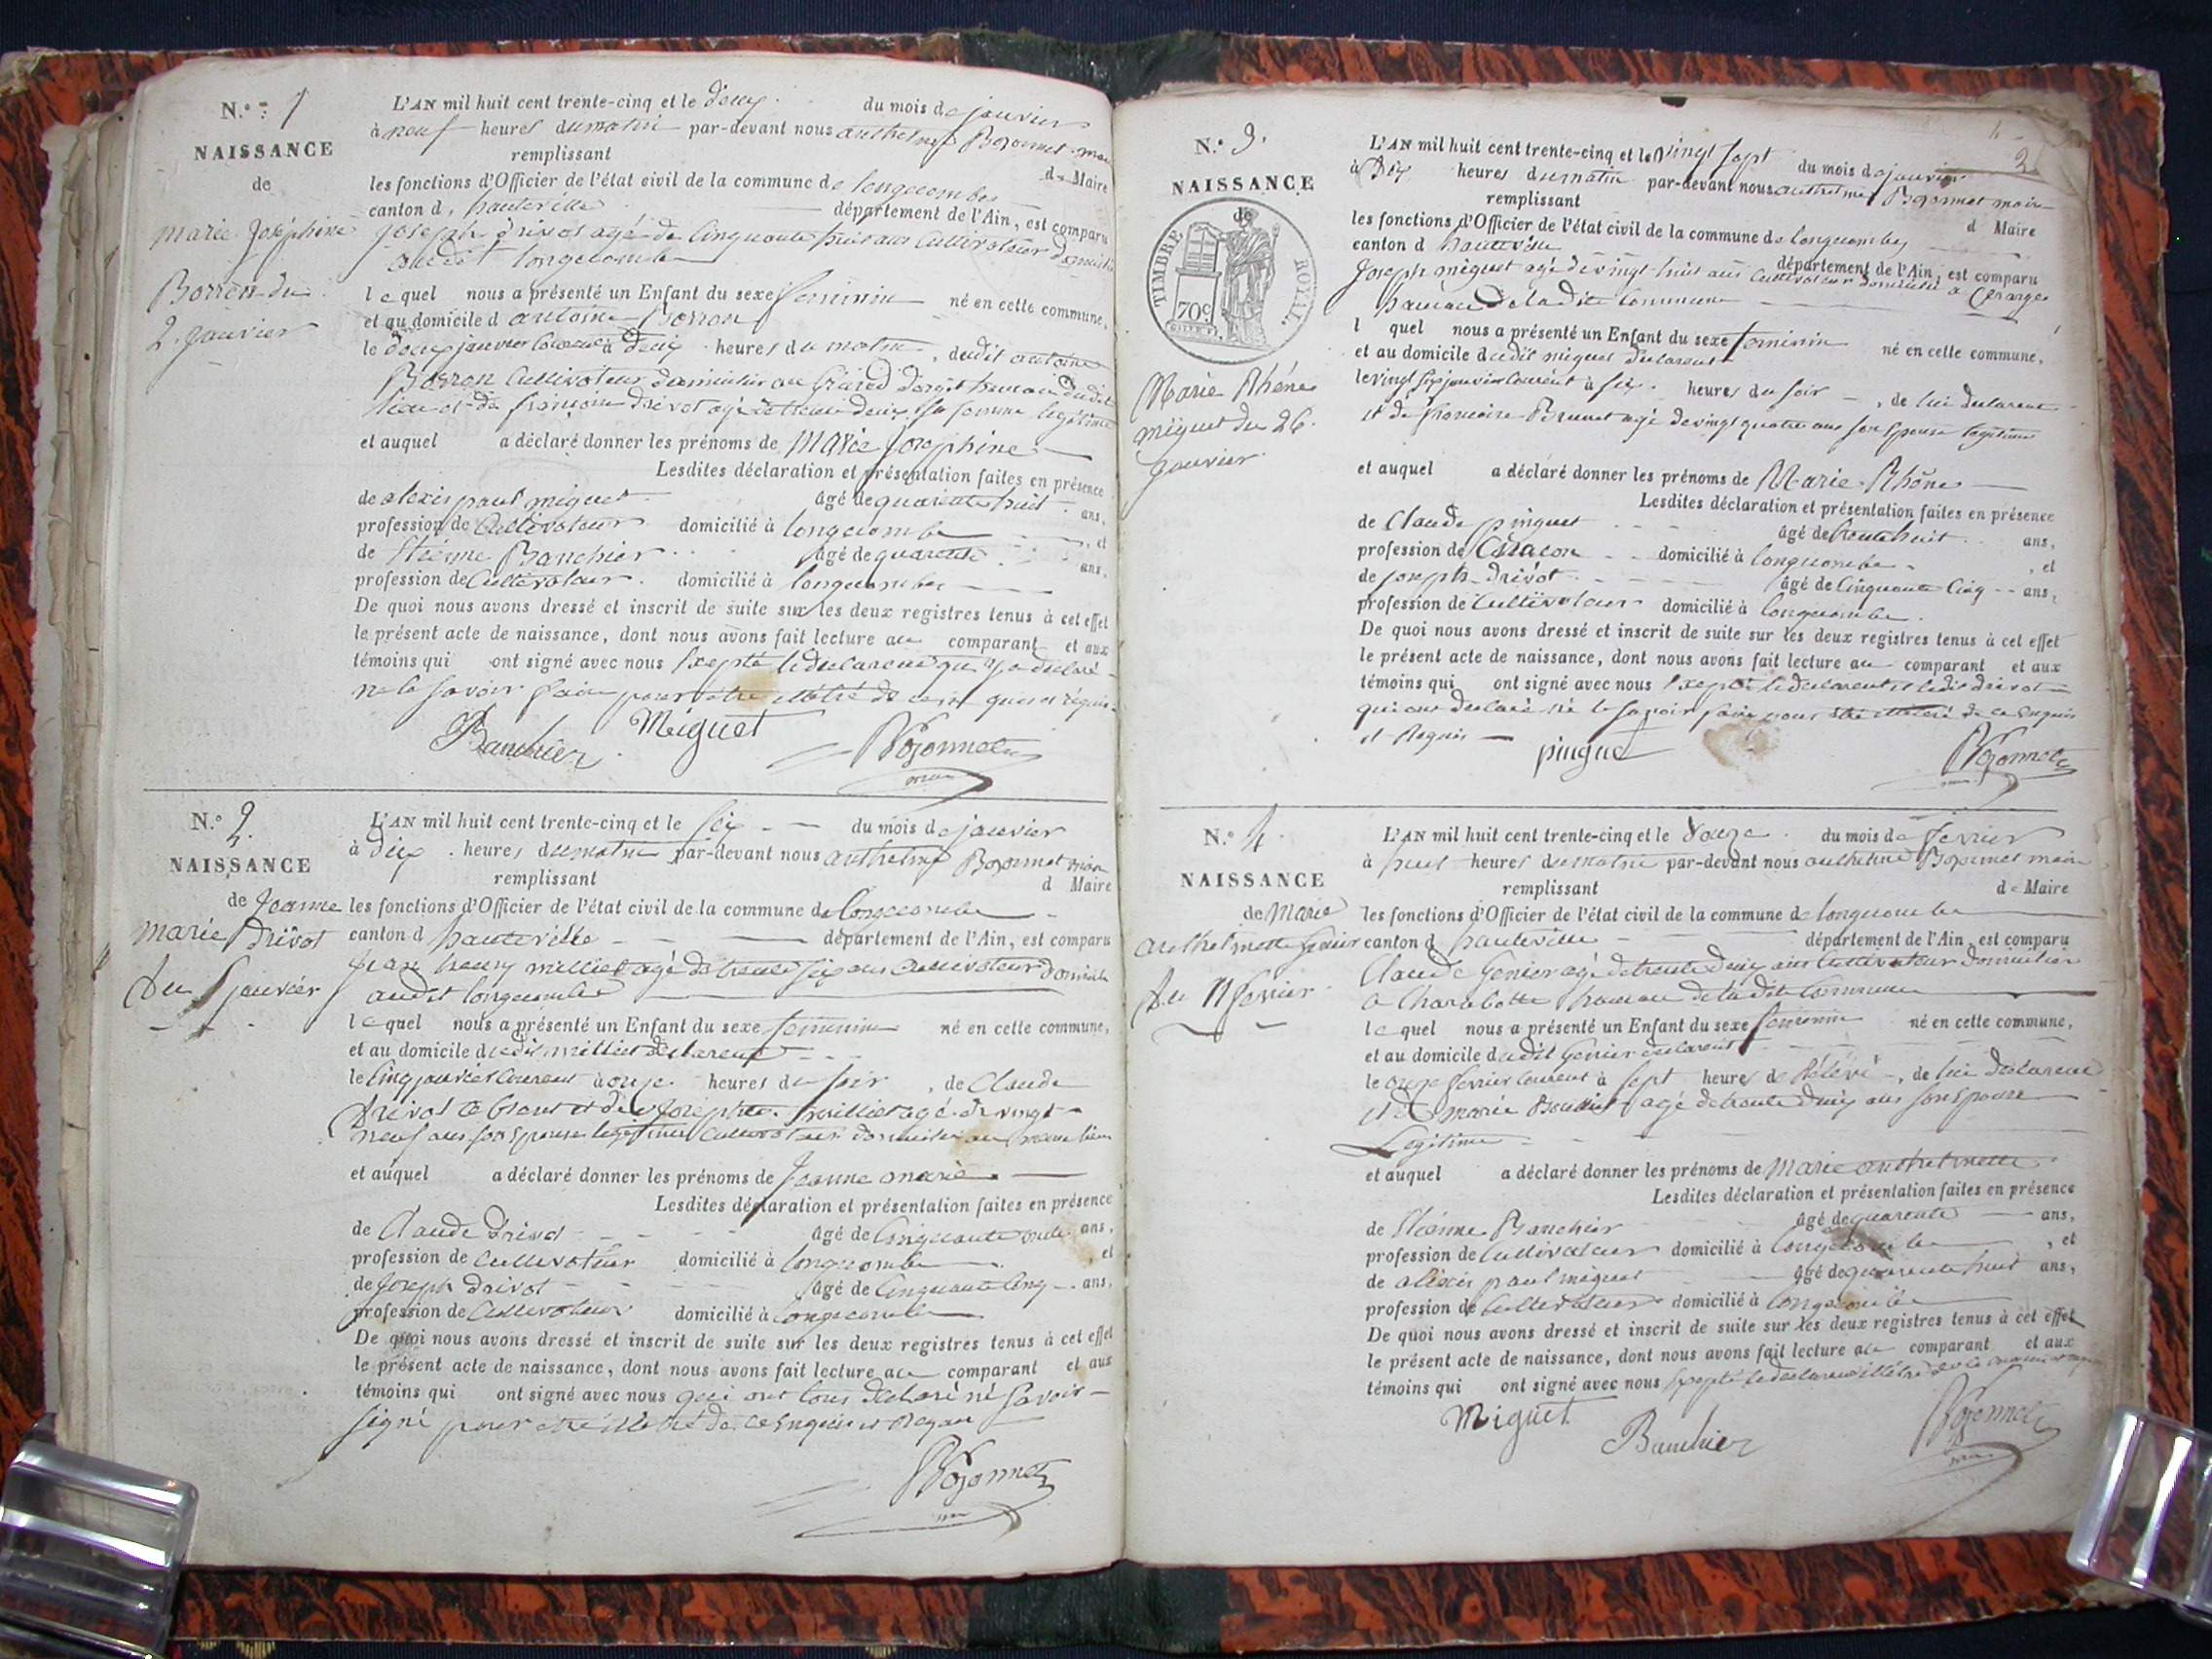 N.º 1
NAISSANCE
de
marie Joséphine
Borron du
2. janvier
L'AN mil huit cent trente-cinq et le deux du mois de janvier
à neuf heures du matin par-devant nous anthelme Bozonnet maire
remplissant
de Maire
les fonctions d'Officier de l'état civil de la commune de longecombe
canton d, hauteville département de l'Ain, est comparu
joseph drivot agé de Cinquante huit ans Cultivateur domicilié
audit longecombe
le quel nous a présenté un Enfant du sexe feminin né en cette commune,
et au domicile d antoine Borron
le deux janvier Courant à deux heures du matin, dudit antoine
Borron Cultivateur domicilié au hameau dudit
lieu et de françoise drivot agé de trente deux sa femme legitime
et auquel a déclaré donner les prénoms de Marie Josephine
Lesdites déclaration et présentation faites en présence
de alexis paul miguet âgé de quarante huit ans,
profession de Cultivateur domicilié à longecombe, et
de Etienne Banchier âgé de quarante ans,
profession de Cultivateur domicilié à longecombe
De quoi nous avons dressé et inscrit de suite sur les deux registres tenus à cet effet
le présent acte de naissance, dont nous avons fait lecture au comparant et aux
témoins qui ont signé avec nous Excepté le declarant qui a declaré
ne le savoir faire pour être illétré de ce requis
Banchier Miguet Bozonnet
maire
N.º 2.
NAISSANCE
de Jeanne
marie Drivot
du 5 janvier
L'AN mil huit cent trente-cinq et le six du mois de janvier
à dix heures du matin par-devant nous anthelme Bozonnet maire
remplissant
d Maire
les fonctions d'Officier de l'état civil de la commune de longecombe
canton d hauteville département de l'Ain, est comparu
Jean millier agé de trente six ans Cultivateur domicilié
audit longecombe
le quel nous a présenté un Enfant du sexe feminin né en cette commune,
et au domicile dudit millier declarant
le Cinq janvier Courant à onze heures du soir, de Claude
Drivot et de Joséphte millier agé de vingt
neuf ans son Epouse legitime Cultivateur domicilié au même lieu
et auquel a déclaré donner les prénoms de Jeanne marie
Lesdites déclaration et présentation faites en présence
de Claude Drivot âgé de Cinquante ans,
profession de Cultivateur domicilié à longecombe et
de Joseph drivot âgé de Cinquante Cinq ans,
profession de Cultivateur domicilié à longecombe
De quoi nous avons dressé et inscrit de suite sur les deux registres tenus à cet effet
le présent acte de naissance, dont nous avons fait lecture au comparant et aux
témoins qui ont signé avec nous qui ont tous declaré ne savoir
signé pour être illetré de ce Enquis et Requis
Bozonnet
maire
2
N.º 3.
NAISSANCE
de
TIMBRE ROYAL.
70c
Marie Rhéne
miguet du 26.
janvier.
L'AN mil huit cent trente-cinq et le vingt sept du mois de janvier
à Dix heures du matin par-devant nous anthelme Bozonnet maire
remplissant
d Maire
les fonctions d'Officier de l'état civil de la commune de longecombe
canton d hauteville département de l'Ain, est comparu
Joseph miguet agé de vingt huit ans Cultivateur domicilié a
hameau de ladite Commune
l quel nous a présenté un Enfant du sexe feminin né en cette commune,
et au domicile dudit miguet declarant
le vingt six janvier Courant à six heures du soir, de lui declarant
et de françoise Brunet agé de vingt quatre ans son Epouse legitime
et auquel a déclaré donner les prénoms de Marie Rhéne
Lesdites déclaration et présentation faites en présence
de Claude pinguet âgé de trente huit ans,
profession de domicilié à longecombe, et
de joseph drivot âgé de Cinquante Cinq ans,
profession de Cultivateur domicilié à longecombe.
De quoi nous avons dressé et inscrit de suite sur les deux registres tenus à cet effet
le présent acte de naissance, dont nous avons fait lecture au comparant et aux
témoins qui ont signé avec nous Excepté le declarant et ledit drivot
qui ont declaré ne le savoir faire pour être illétré de ce Enquis
et Requis
pinguet Bozonnet
N.º 4.
NAISSANCE
de Marie
anthelmette Genier
du 11 fevrier
L'AN mil huit cent trente-cinq et le Douze du mois de fevrier
à huit heures du matin par-devant nous anthelme Bozonnet maire
remplissant
de Maire
les fonctions d'Officier de l'état civil de la commune de longecombe
canton d hauteville département de l'Ain, est comparu
Claude Genier agé de trente deux ans Cultivateur domicilier
a Charabotte hameau de ladite Commune
le quel nous a présenté un Enfant du sexe feminin né en cette commune,
et au domicile dudit Genier declarant
le onze fevrier Courant à sept heures de, de lui declarant
et de marie agé de trente deux ans son Epouse
Legitime
et auquel a déclaré donner les prénoms de Marie anthelmette
Lesdites déclaration et présentation faites en présence
de Etienne Banchier âgé de quarante ans,
profession de Cultivateur domicilié à longecombe, et
de alexis paul miguet âgé de quarante huit ans,
profession de Cultivateur domicilié à longecombe
De quoi nous avons dressé et inscrit de suite sur les deux registres tenus à cet effet
le présent acte de naissance, dont nous avons fait lecture au comparant et aux
témoins qui ont signé avec nous Excepté le declarant illétré de ce
Miguet Banchier Bozonnet
maire